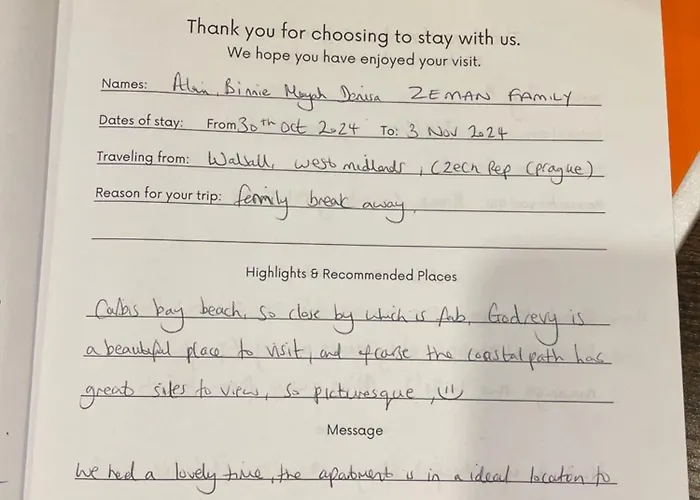 Thank you for choosing to stay with us.
We hope you have enjoyed your visit.
Names: Alan, Binnie Mayah Denisa ZEMAN FAMILY
Dates of stay: From 30th Oct 2024 To: 3 Nov 2024
Traveling from: Walsall, west midlands, (Czech Rep (prague)
Reason for your trip: family break away.
Highlights & Recommended Places
Calbis bay beach, so close by which is fab, Godrevy is
a beautiful place to visit, and the coastal path has
great sites to view, so picturesque,
Message
We had a lovely time, the apartment is in a ideal location to